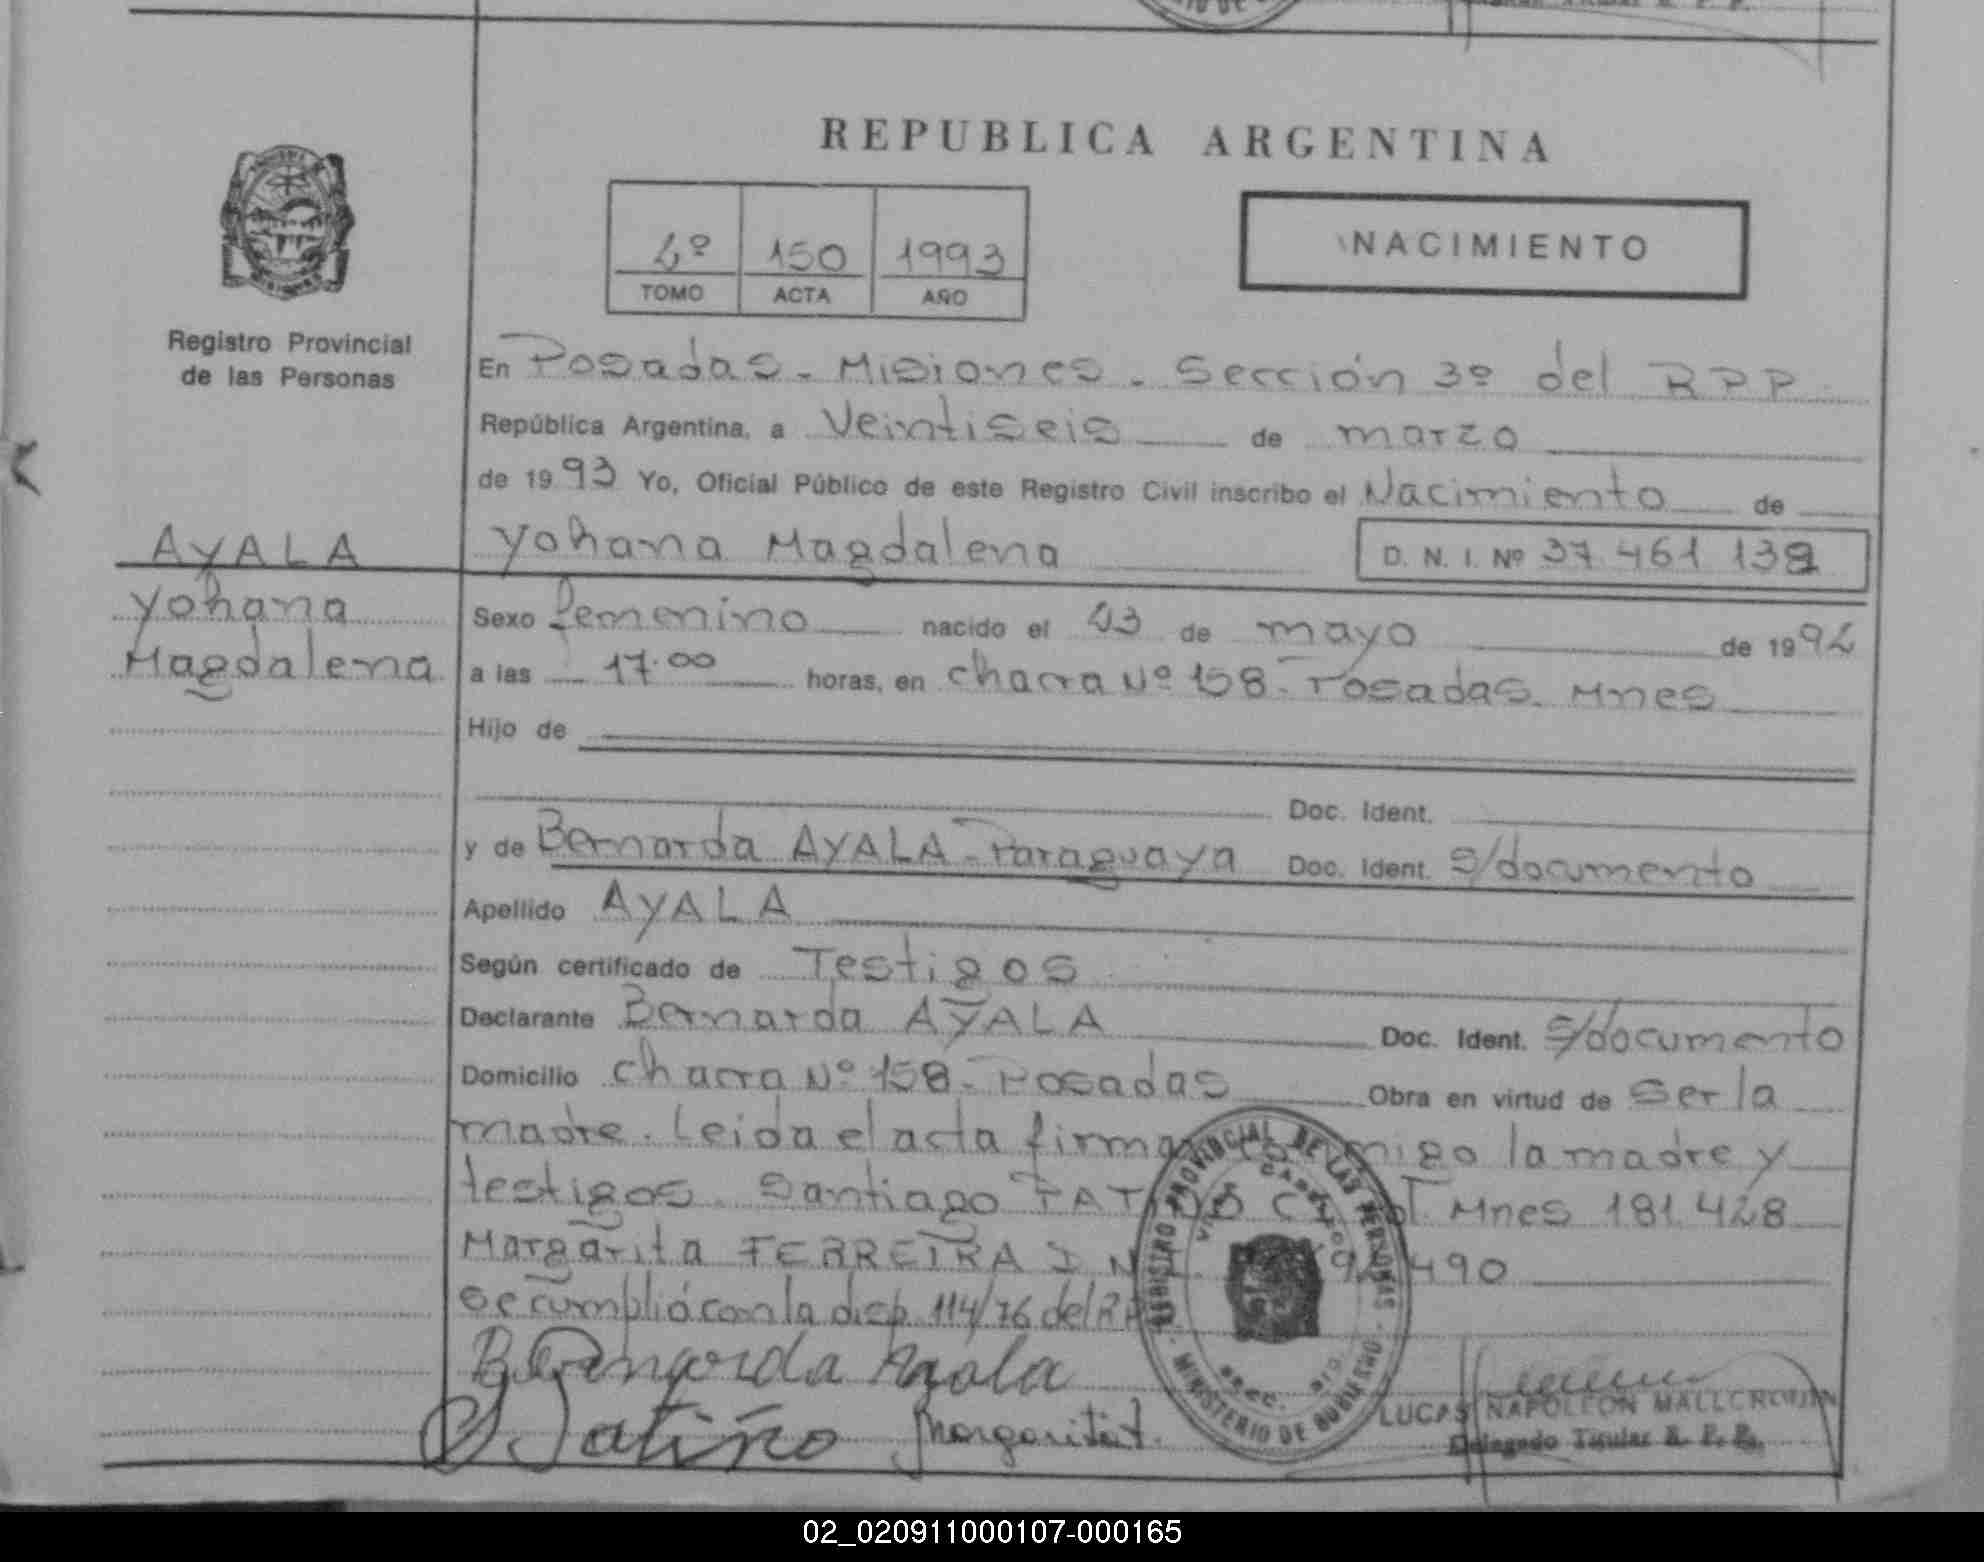 REPUBLICA ARGENTINA
2º 150 1993
TOMO ACTA AÑO
NACIMIENTO
Registro Provincial
de las Personas
En Posadas - Misiones - Sección 3º del RPP
República Argentina, a Veintiseis de marzo
de 1993 Yo, Oficial Público de este Registro Civil inscribo el Nacimiento de
AYALA
Yohana
Magdalena
Yohana Magdalena D. N. I. Nº 37.461.139
Sexo femenino nacido el 23 de mayo de 1992
a las 17.00 horas, en chacra Nº 158 - Posadas - Mnes
Hijo de
Doc. Ident.
y de Bernarda AYALA - Paraguaya Doc. Ident. s/documento
Apellido AYALA
Según certificado de Testigos
Declarante Bernarda AYALA Doc. Ident. s/documento
Domicilio chacra Nº 158 - Posadas Obra en virtud de ser la
madre. Leida el acta firma la madre y
testigos Santiago Mnes 181.428
Margarita FERREIRA 490
se cumplió con la disp. 114/76 del
Bernarda Ayala
Patiño Margarita F.
REGISTRO PROVINCIAL DE LAS PERSONAS
MINISTERIO DE GOBIERNO
LUCAS NAPOLEON
Delegado Titular R. P. P.
02_020911000107-000165